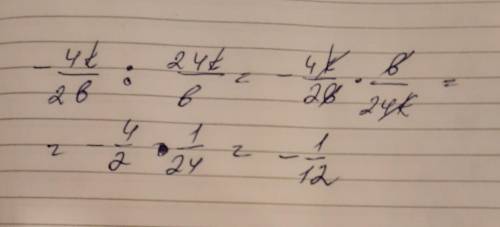 - 4k/2b : 24k/b = - 4k/2b · b/24k =
= - 4/2 · 1/24 = - 1/12